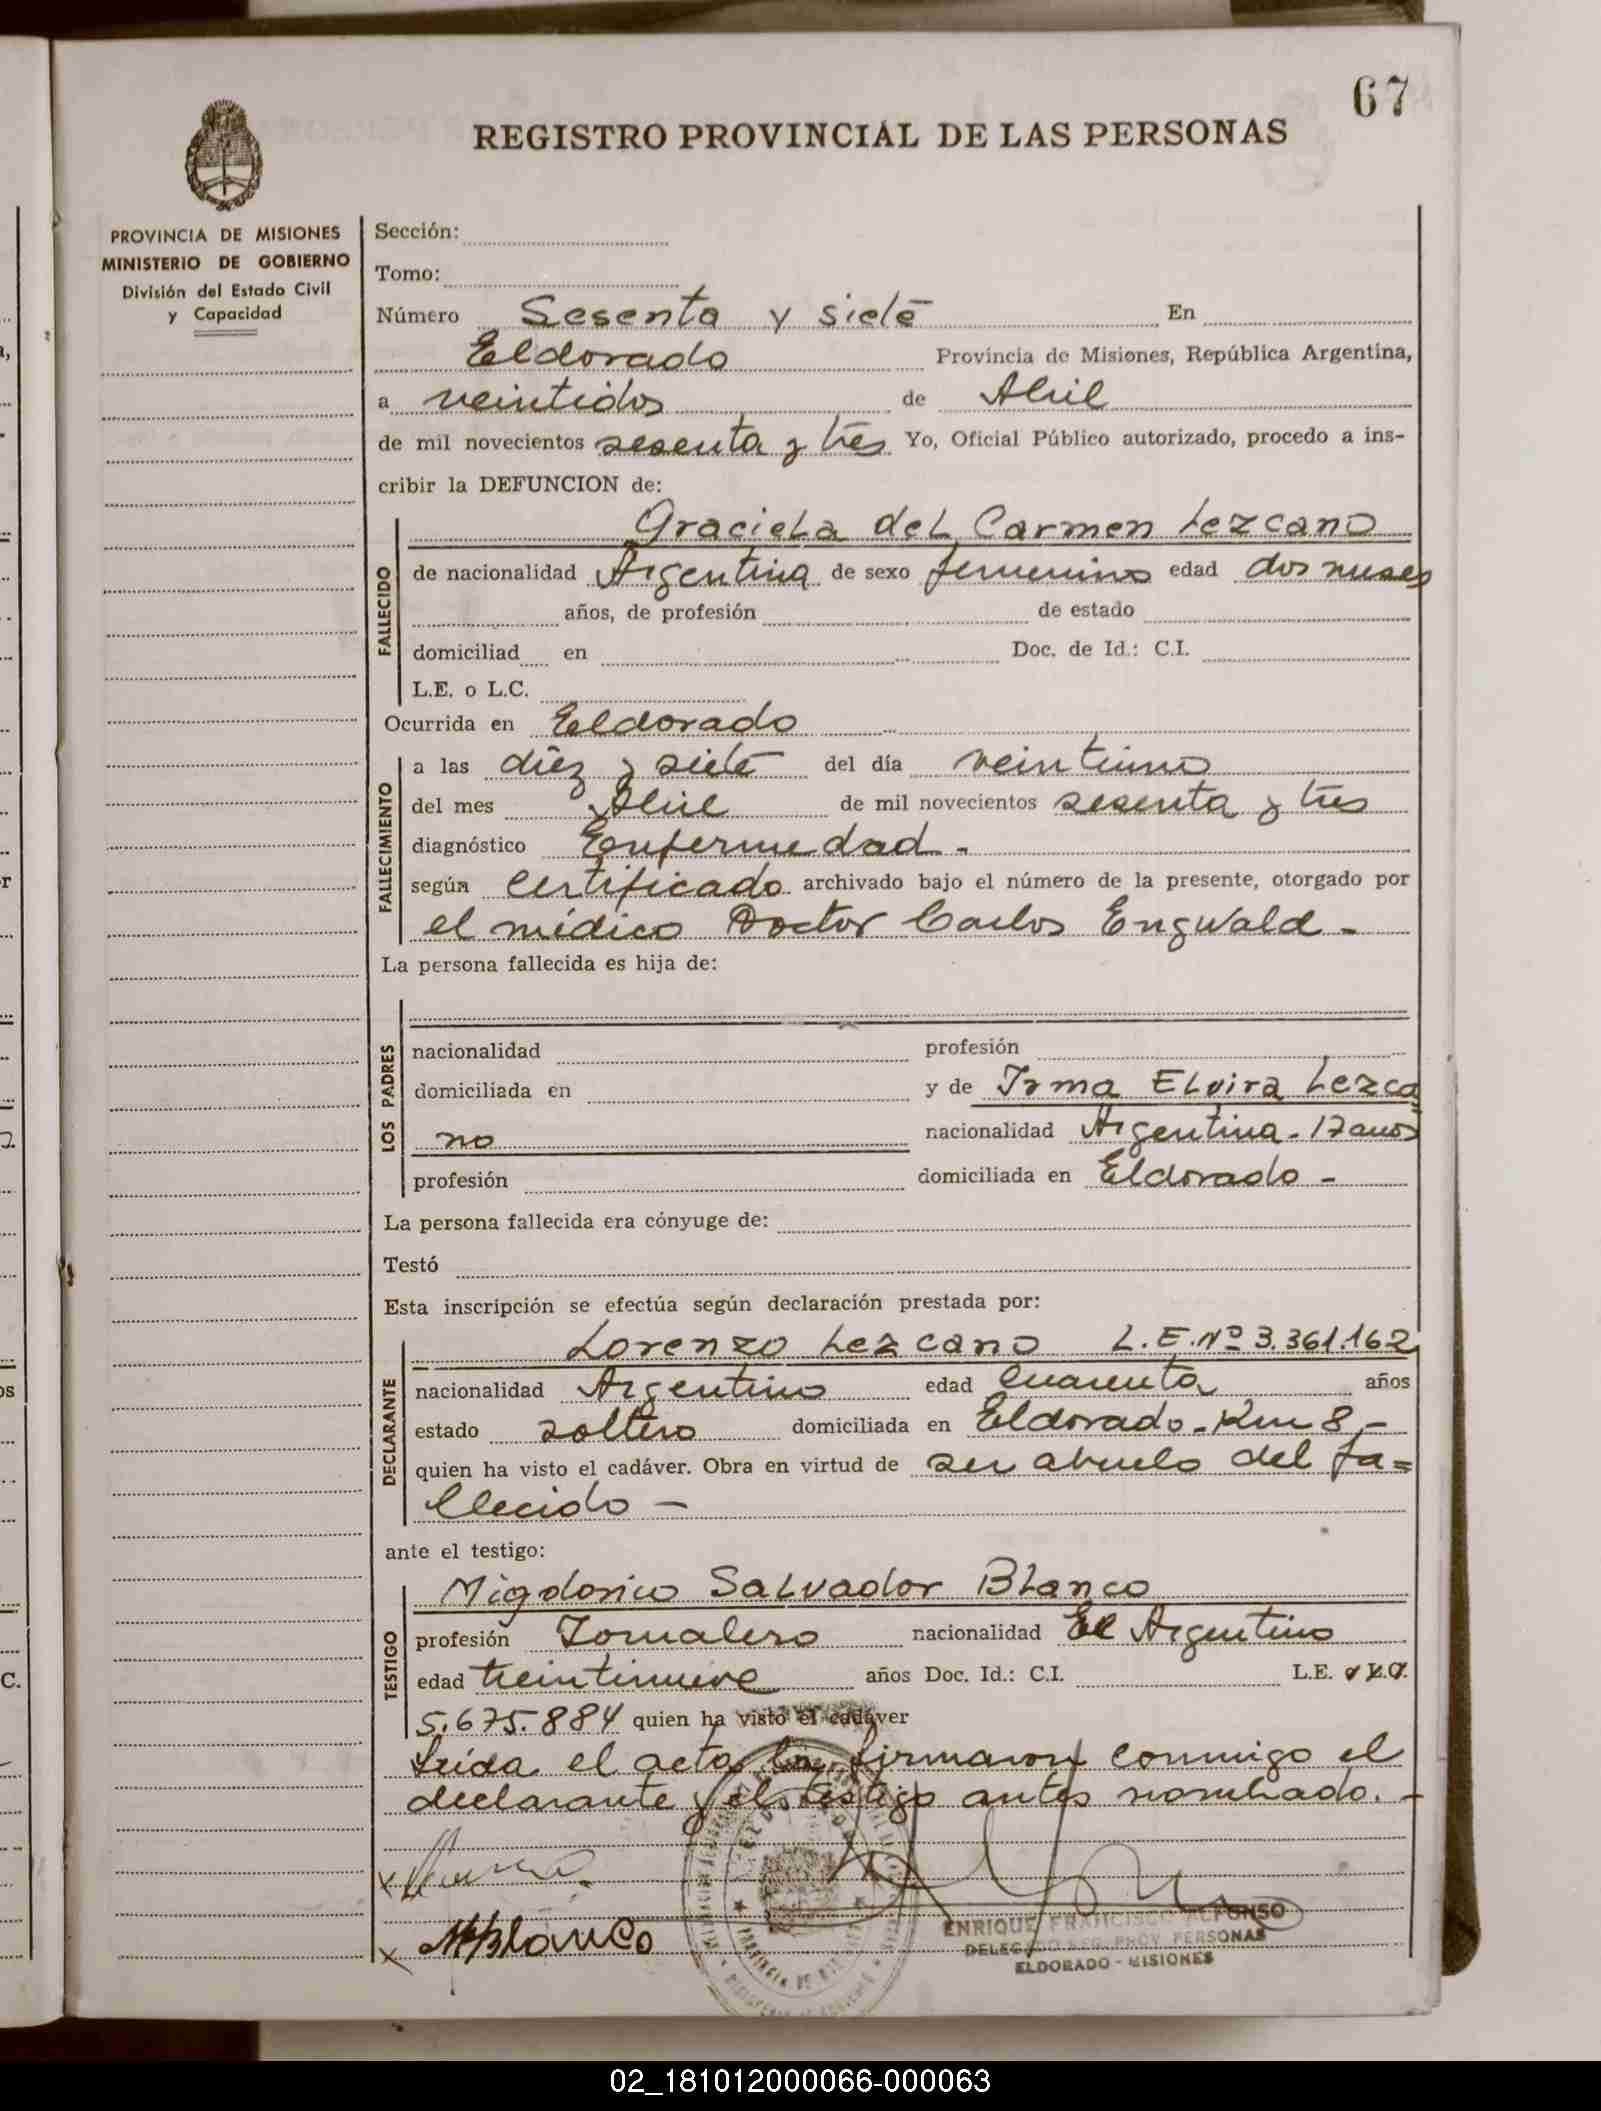 67
REGISTRO PROVINCIAL DE LAS PERSONAS
PROVINCIA DE MISIONES
MINISTERIO DE GOBIERNO
División del Estado Civil
y Capacidad
Sección:
Tomo:
Número Sesenta y siete En
Eldorado Provincia de Misiones, República Argentina,
a veintidos de Abril
de mil novecientos sesenta y tres Yo, Oficial Público autorizado, procedo a ins-
cribir la DEFUNCION de:
FALLECIDO
Graciela del Carmen Lezcano
de nacionalidad Argentina de sexo femenino edad dos meses
años, de profesión de estado
domiciliad en Doc. de Id.: C.I.
L.E. o L.C.
Ocurrida en Eldorado
FALLECIMIENTO
a las diez y siete del día veintiuno
del mes Abril de mil novecientos sesenta y tres
diagnóstico Enfermedad -
según Certificado archivado bajo el número de la presente, otorgado por
el médico Doctor Carlos Engwald -
La persona fallecida es hija de:
LOS PADRES
nacionalidad profesión
domiciliada en y de Irma Elvira Lezca
no nacionalidad Argentina - 17 años
profesión domiciliada en Eldorado -
La persona fallecida era cónyuge de:
Testó
Esta inscripción se efectúa según declaración prestada por:
DECLARANTE
Lorenzo Lezcano L.E. Nº 3.361.162
nacionalidad Argentino edad Cuarenta años
estado soltero domiciliada en Eldorado - Km 8 -
quien ha visto el cadáver. Obra en virtud de ser abuelo del fa=
llecido -
ante el testigo:
TESTIGO
Salvador Blanco
profesión Jornalero nacionalidad El Argentino
edad treintinueve años Doc. Id.: C.I. L.E.
5.675.884 quien ha visto el cadáver
Leida el acta la firmaron conmigo el
declarante y el testigo antes nombrado. -
x
x Blanco
ENRIQUE FRANCISCO ALFONSO
DELEGADO REG. PROV. PERSONAS
ELDORADO - MISIONES
02_181012000066-000063